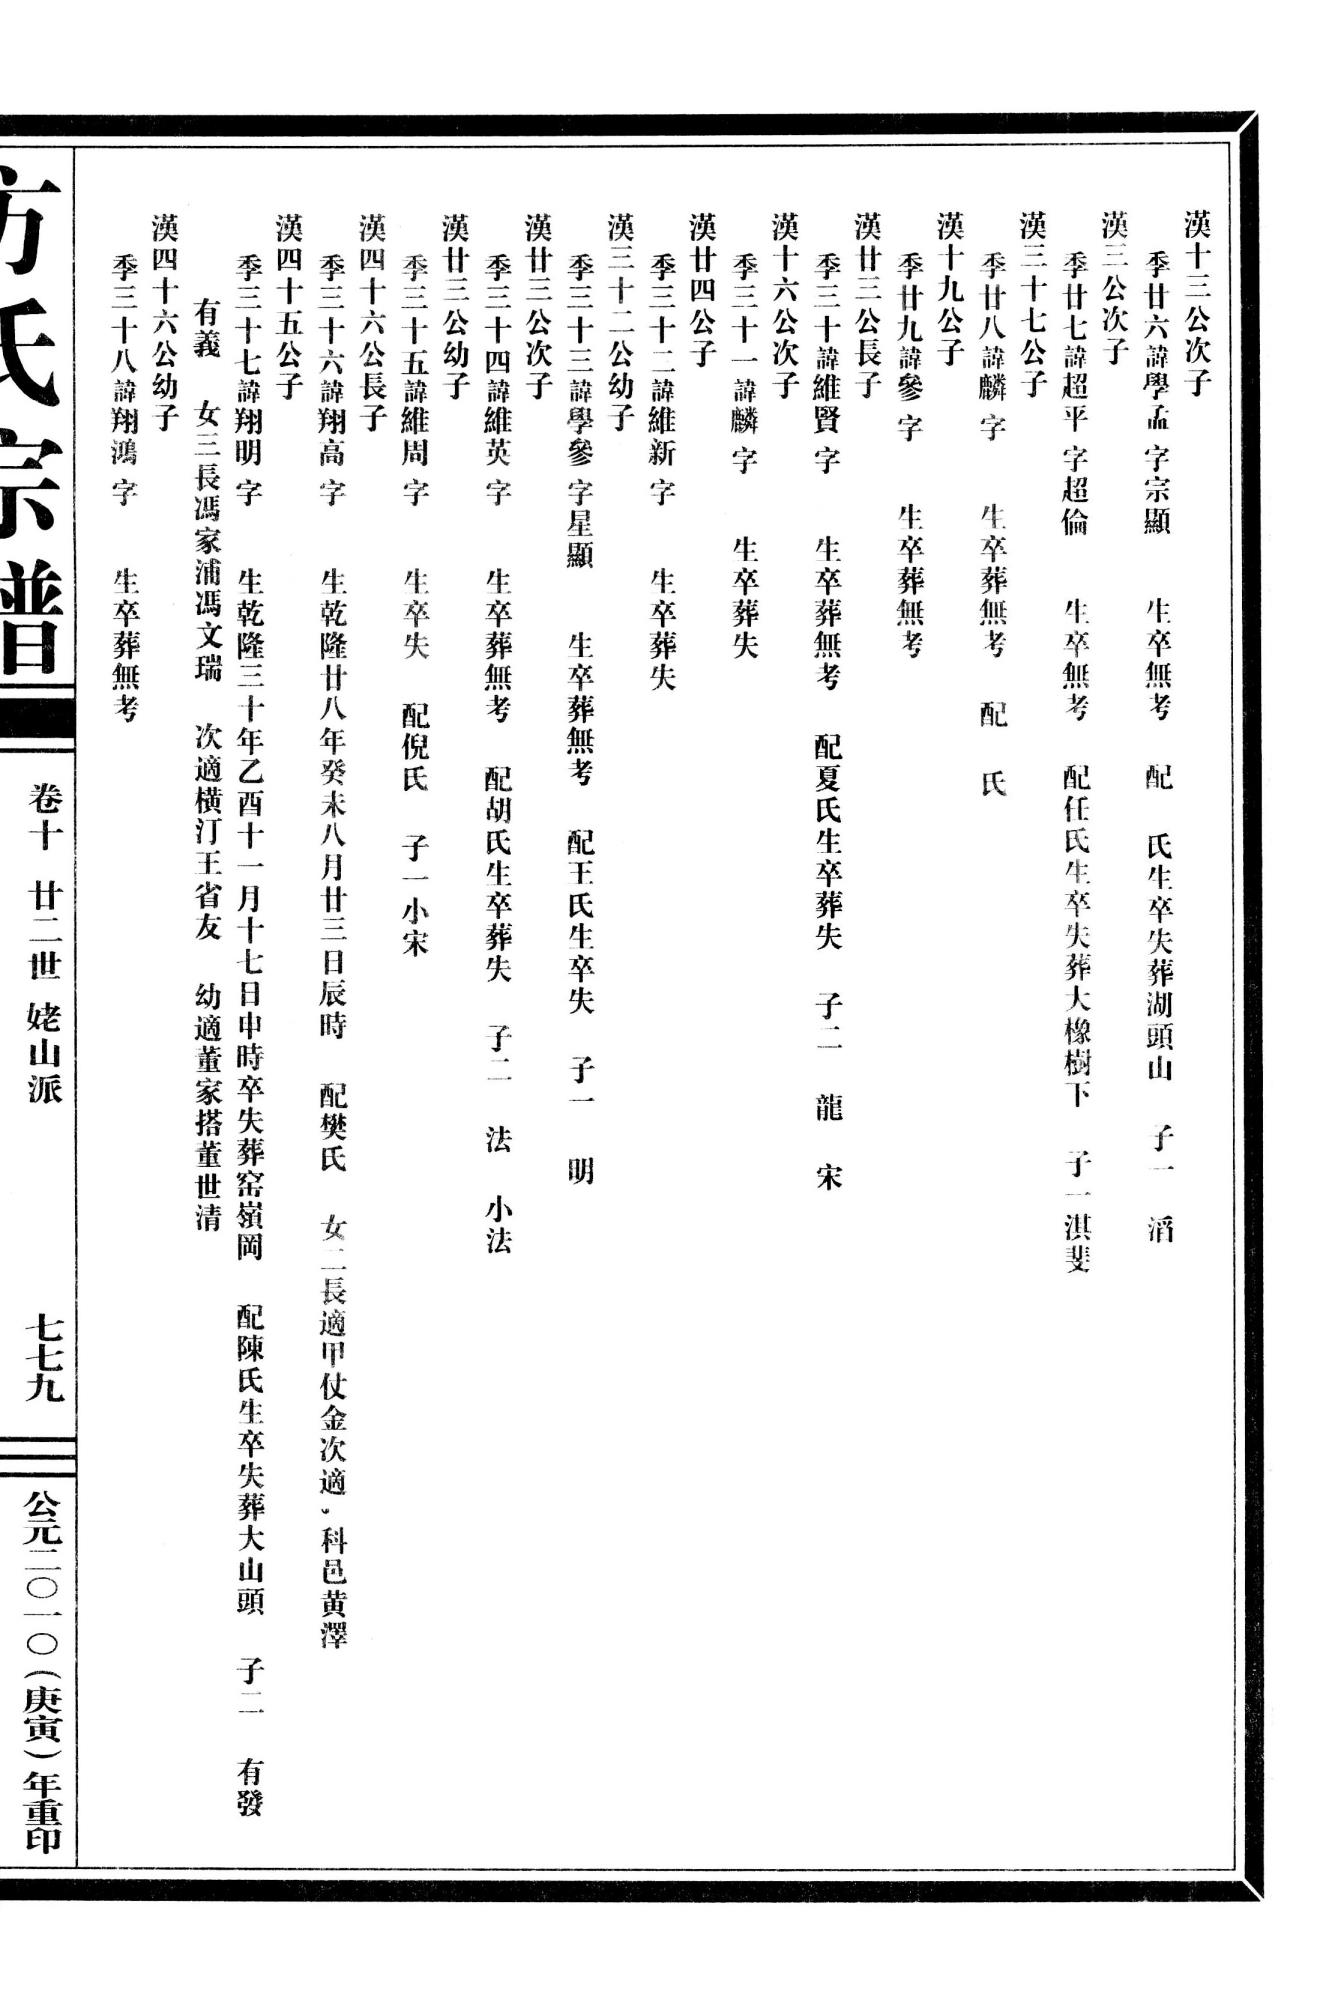 漢十三公次子
季廿六諱學孟 字宗顯 生卒無考 配 氏生卒失葬湖頭山 子一 滔
漢三公次子
季廿七諱超平 字超倫 生卒無考 配任氏生卒失葬大橡樹下 子一淇斐
漢三十七公子
季廿八諱麟 字 生卒葬無考 配 氏
漢十九公子
季廿九諱參 字 生卒葬無考
漢廿三公長子
季三十諱維賢 字 生卒葬無考 配夏氏生卒葬失 子二 龍 宋
漢十六公次子
季三十一諱麟 字 生卒葬失
漢廿四公子
季三十二諱維新 字 生卒葬失
漢三十二公幼子
季三十三諱學參 字星顯 生卒葬無考 配王氏生卒失 子一 明
漢廿三公次子
季三十四諱維英 字 生卒葬無考 配胡氏生卒葬失 子二 法 小法
漢廿三公幼子
季三十五諱維周 字 生卒失 配倪氏 子一小宋
漢四十六公長子
季三十六諱翔高 字 生乾隆廿八年癸未八月廿三日辰時 配樊氏 女二長適甲仗金次適 科邑黄澤
漢四十五公子
季三十七諱翔明 字 生乾隆三十年乙酉十一月十七日申時卒失葬窑嶺岡 配陳氏生卒失葬大山頭 子二 有發
有義 女三長馮家浦馮文瑞 次適橫汀王省友 幼適董家搭董世清
漢四十六公幼子
季三十八諱翔鴻 字 生卒葬無考
方氏宗譜
卷十 廿二世 姥山派
七七九
公元二〇一〇(庚寅)年重印